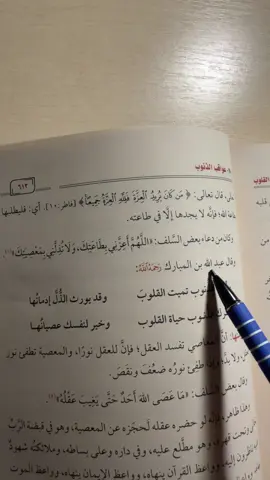 عواقب الذنوب
٦١٣
تعالى، قال تعالى: ﴿مَن كَانَ يُرِيدُ الْعِزَّةَ فَلِلَّهِ الْعِزَّةُ جَمِيعًا﴾ [فاطر: ١٠]. أي: فليطلبها
بطاعة الله؛ فإنَّه لا يجدها إلَّا في طاعته.
وكان من دعاء بعض السَّلف: «اللَّهُمَّ أَعِزَّنِي بِطَاعَتِكَ، وَلَا تُذِلَّنِي بِمَعْصِيَتِكَ»
وقال عبد الله بن المبارك رَحِمَهُ اللَّهُ:
الذنوب تميت القلوبَ وقد يورث الذُّلَّ إدمانُها
الذنوب حياة القلوب وخير لنفسك عصيانُها
أنَّ المعاصي تفسد العقل؛ فإنَّ للعقل نورًا، والمعصية تطفئ نور
ولا بدَّ، وإذا طفئ نورُه ضَعُفَ ونقَصَ.
وقال بعض السلف: «مَا عَصَى اللهَ أَحَدٌ حَتَّى يَغِيبَ عَقْلُهُ»
وهذا ظاهر، فإنَّه لو حضره عقله لَحجَزه عن المعصية، وهو في قبضة الرَّبِّ
تحت قهره، وهو مطَّلع عليه، وفي داره، وعلى بساطه، وملائكتُه شهودٌ
إليه، وواعظ القرآن ينهاه، وواعظ الإيمان ينهاه، وواعظ الموت
القلوب